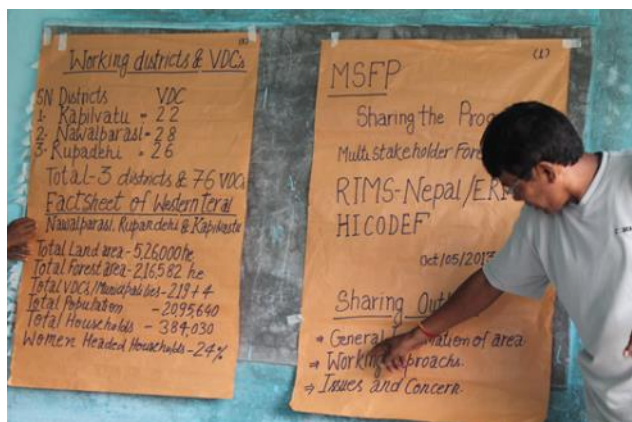 (2)
Working districts & VDC's
SN Districts VDC
1. Kapilvatu = 22
2. Nawalparasi = 28
3. Rupadehi = 26
Total-3 districts & 76 VDCs
Fact Sheet of Western Terai
Nawalparasi, Rupandehi & Kapilvastu
Total Land area - 5,26,000 he
Total Forest area - 216,582 he
Total VDCs/Municipalities - 219+4
Total Population - 2095,640
Total Households - 384,030
Women Headed Households - 24%
(1)
MSFP
Sharing the
Multistakeholder
RIMS-Nepal/
HICODEF
Oct/05/2013
Sharing
⇒ General of area
⇒ Working
⇒ Issues and Concern.